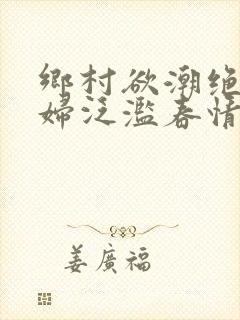 鄉村欲潮绝
婦泛濫春情
姜廣福